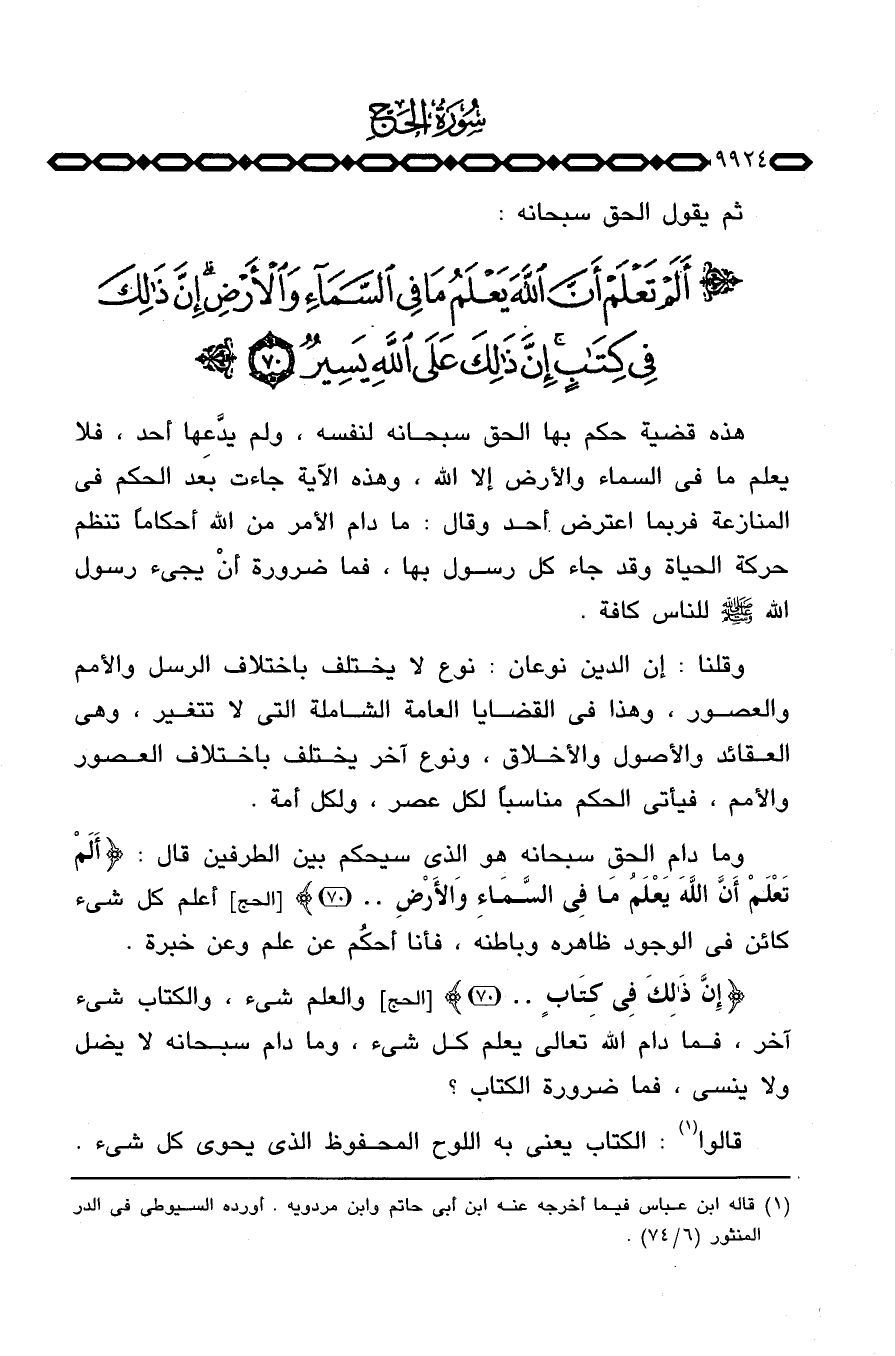 سُورَةُ الحَجِّ
٩٩٢٤
ثم يقول الحق سبحانه :
﴿ أَلَمْ تَعْلَمْ أَنَّ ٱللَّهَ يَعْلَمُ مَا فِى ٱلسَّمَآءِ وَٱلْأَرْضِۗ إِنَّ ذَٰلِكَ
فِى كِتَٰبٍۚ إِنَّ ذَٰلِكَ عَلَى ٱللَّهِ يَسِيرٌ ۝٧٠ ﴾
هذه قضية حكم بها الحق سبحانه لنفسه ، ولم يدَّعِها أحد ، فلا
يعلم ما فى السماء والأرض إلا الله ، وهذه الآية جاءت بعد الحكم فى
المنازعة فربما اعترض أحد وقال : ما دام الأمر من الله أحكاماً تنظم
حركة الحياة وقد جاء كل رسول بها ، فما ضرورة أنْ يجىء رسول
الله ﷺ للناس كافة .
وقلنا : إن الدين نوعان : نوع لا يختلف باختلاف الرسل والأمم
والعصور ، وهذا فى القضايا العامة الشاملة التى لا تتغير ، وهى
العقائد والأصول والأخلاق ، ونوع آخر يختلف باختلاف العصور
والأمم ، فيأتى الحكم مناسباً لكل عصر ، ولكل أمة .
وما دام الحق سبحانه هو الذى سيحكم بين الطرفين قال : ﴿ أَلَمْ
تَعْلَمْ أَنَّ اللَّهَ يَعْلَمُ مَا فِى السَّمَاءِ وَالأَرْضِ .. (٧٠) ﴾ [الحج] أعلم كل شىء
كائن فى الوجود ظاهره وباطنه ، فأنا أحكُم عن علم وعن خبرة .
﴿ إِنَّ ذَٰلِكَ فِى كِتَابٍ .. (٧٠) ﴾ [الحج] والعلم شىء ، والكتاب شىء
آخر ، فما دام الله تعالى يعلم كل شىء ، وما دام سبحانه لا يضل
ولا ينسى ، فما ضرورة الكتاب ؟
قالوا(١) : الكتاب يعنى به اللوح المحفوظ الذى يحوى كل شىء .
(١) قاله ابن عباس فيما أخرجه عنه ابن أبى حاتم وابن مردويه . أورده السيوطى فى الدر
المنثور (٦/ ٧٤) .